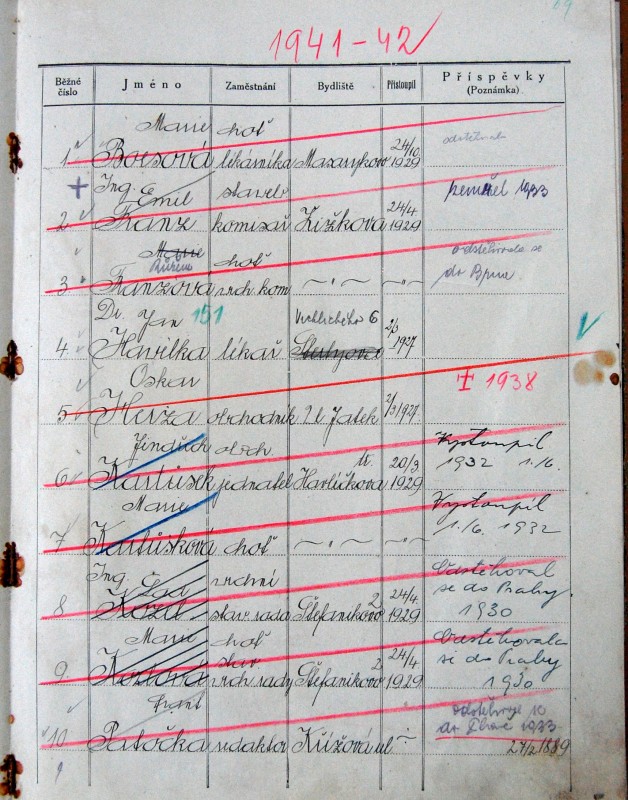 19
1941-42
Běžné číslo Jméno Zaměstnání Bydliště Přistoupil Příspěvky (Poznámka)
Marie choť 24/10
1. Boesová lékárníka Masarykova 1929
Ing. Emil staveb zemřel 1933
2. Franz komisař Žižkova 24/4 1929
Marie Růžena choť odstěhovala se
3. Franzová vrch. kom. do Brna.
Dr. Jan 151 Vrchlického 6
4. Havelka lékař 1927
Oskar 1938
5. obchodník 1927
Jindřich obch. tř. 20/3 Vystoupil
6. jednatel Havlíčkova 1929 1932 1.6.
Marie Vystoupil
7. choť 1./6. 1932
Ing. vrchní Odstěhoval
8. Kozel stav. rada Štefánikova 2 24/4 1929 se do Prahy 1930
Marie choť Odstěhovala
9. Kozlová stav. vrch. rady Štefánikova 2 24/4 1929 se do Prahy 1930
Frant. odstěhuje se
10 Patočka redaktor Křížová ul. 1933
27/2 1889